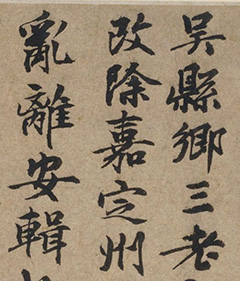 吳縣鄉三老
改除嘉定州
亂離安輯